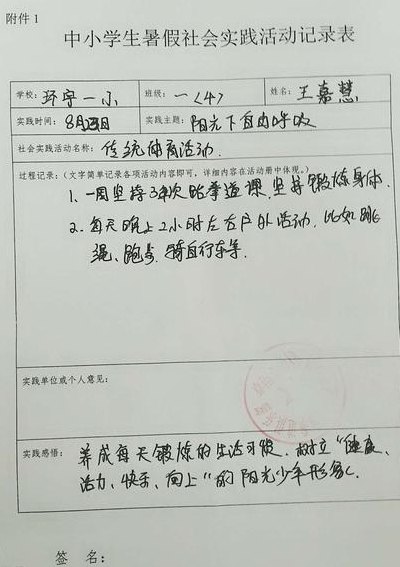 附件 1
中小学生暑假社会实践活动记录表
学校：环宇一小 班级：一〈4〉 姓名：王嘉慧
实践时间：8月23日 实践主题：阳光下自由呼吸
社会实践活动名称：传统体育活动.
过程记录：（文字简单记录各项活动内容即可，详细内容在活动册中体现。）
1、一周坚持3次跆拳道课,坚持锻炼身体.
2、每天晚上2小时左右户外活动，比如跳
绳、跑步、骑自行车等.
实践单位或个人意见：
实践感悟：养成每天锻炼的生活习惯，树立“健康、
活力、快乐、向上”的阳光少年形象。
签 名：